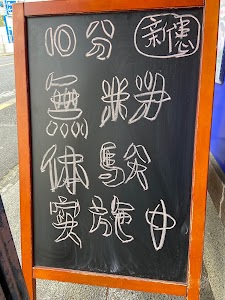 10分
無料
体験
実施中